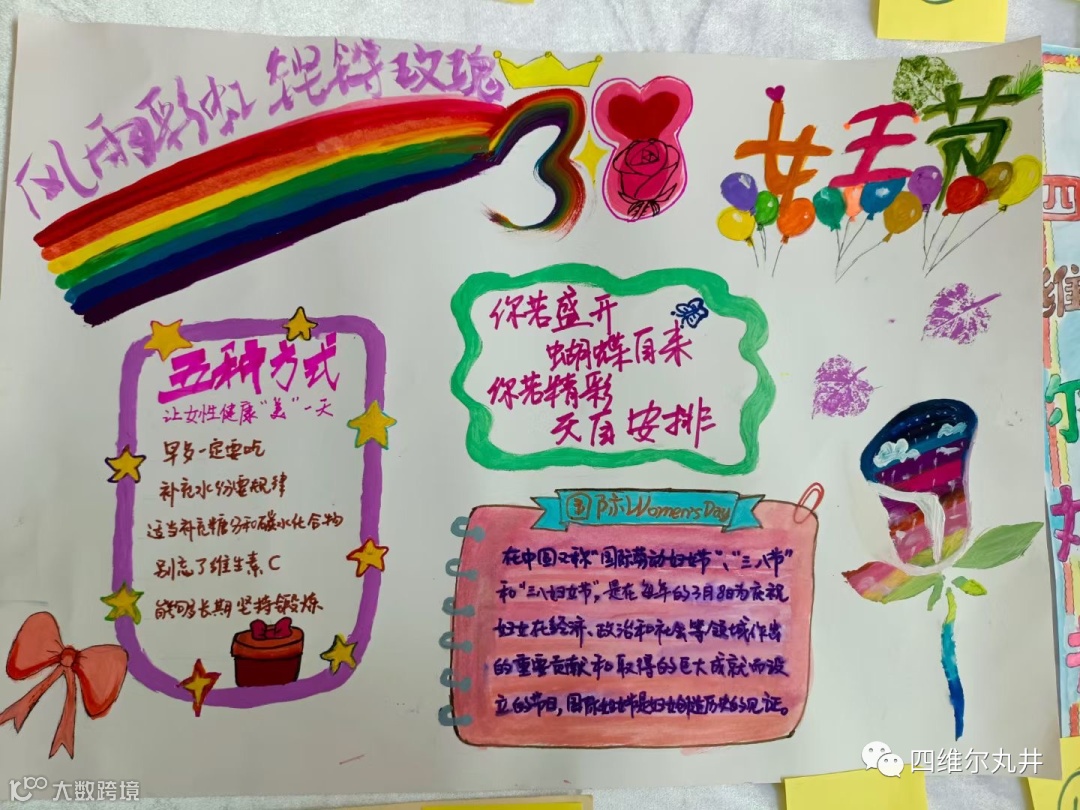 风雨彩虹 铿锵玫瑰
38
女王节
你若盛开
蝴蝶自来
你若精彩
天自安排
五种方式
让女性健康“美”一天
早多一定要吃
补充水份要规律
适当补充糖分和碳水化合物
别忘了维生素C
能够长期坚持锻炼
国际Women's Day
在中国又称“国际劳动妇女节”、“三八节”
和“三八妇女节”，是在每年的3月8日为庆祝
妇女在经济、政治和社会等领域作出
的重要贡献和取得的巨大成就而设
立的节日，国际妇女节是妇女创造历史的见证。
四
维
尔
四维尔丸井
大数跨境